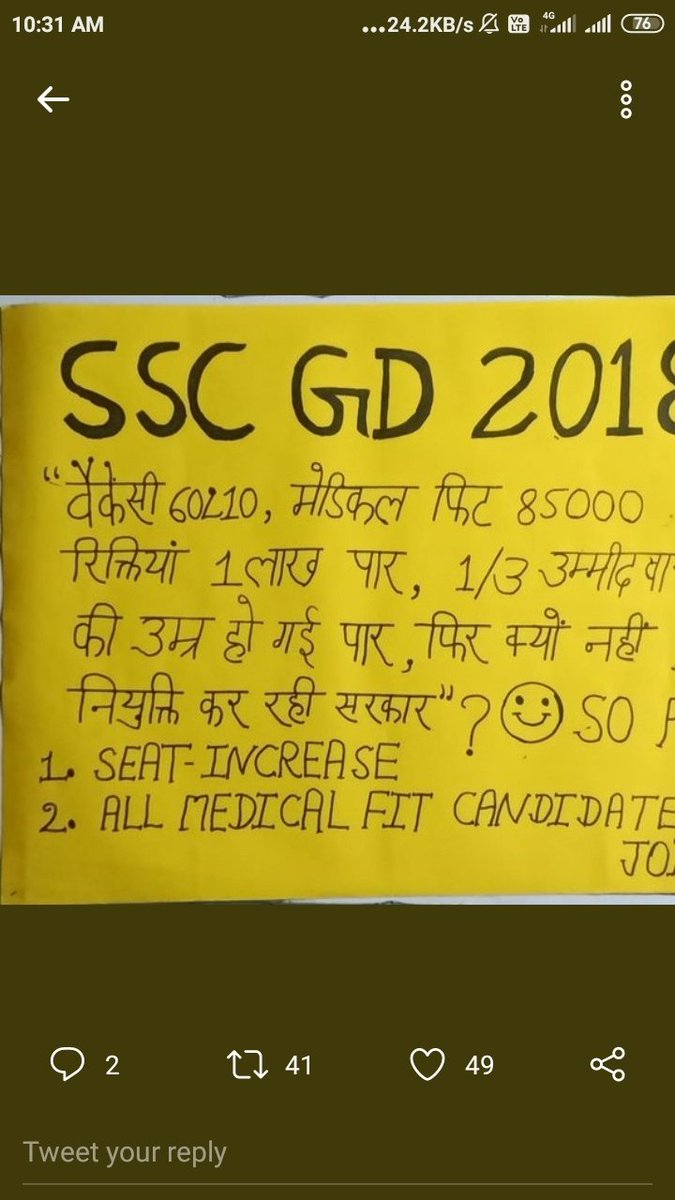 10:31 AM
...24.2KB/s Vo LTE 4G 76
SSC GD 2018
"वैकेंसी 60210, मेडिकल फिट 85000
रिक्तियां 1 लाख पार, 1/3 उम्मीदवा
की उम्र हो गई पार, फिर क्यों नहीं
नियुक्ति कर रही सरकार"? SO
1. SEAT-INCREASE
2. ALL MEDICAL FIT CANDIDATE
JOI
2 41 49
Tweet your reply